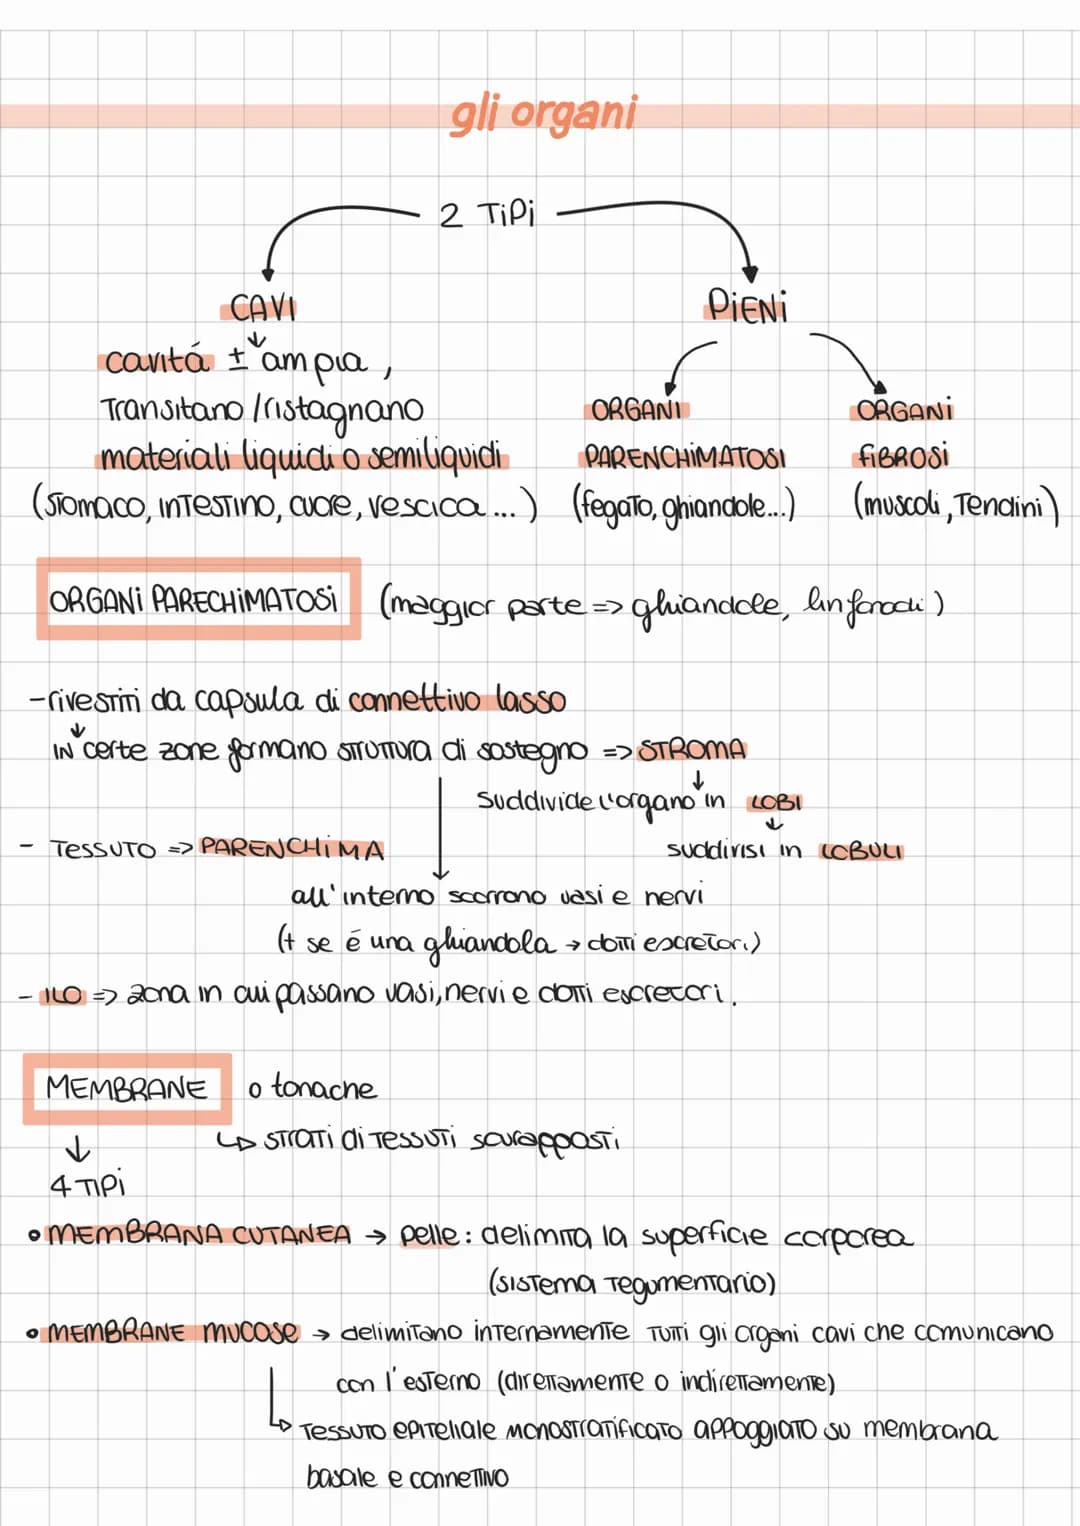 gli organi
2 TiPi
CAVI
PiENi
cavitá ± ampia,
Transitano/ristagnano
materiali liquidi o semiliquidi
(STOMACO, INTESTINO, cuore, vescica...)
ORGANI
PARENCHiMATOSI
(fegato, ghiandole...)
ORGANi
fiBROSi
(muscoli, Tendini)
ORGANi PARECHiMATOSi (maggior parte => ghiandole, linfonodi)
-rivestiti da capsula di connettivo lasso
IN certe zone formano struttura di sostegno => STROMA
Suddivide l'organo in LOBI
- TESSUTO => PARENCHiMA
suddivisi in LOBULI
all'interno scorrono vasi e nervi
(+ se é una ghiandola → dotti escretori)
- ILO => zona in cui passano vasi, nervi e dotti escretori.
MEMBRANE o tonache
↳ strati di tessuti sovrapposti
4 TIPi
• MEMBRANA CUTANEA → pelle: delimita la superficie corporea
(sistema tegumentario)
• MEMBRANE MUCOSE → delimitano internamente tutti gli organi cavi che comunicano
con l'esterno (direttamente o indirettamente)
↳ Tessuto epiteliale monostratificato appoggiato su membrana
basale e connettivo